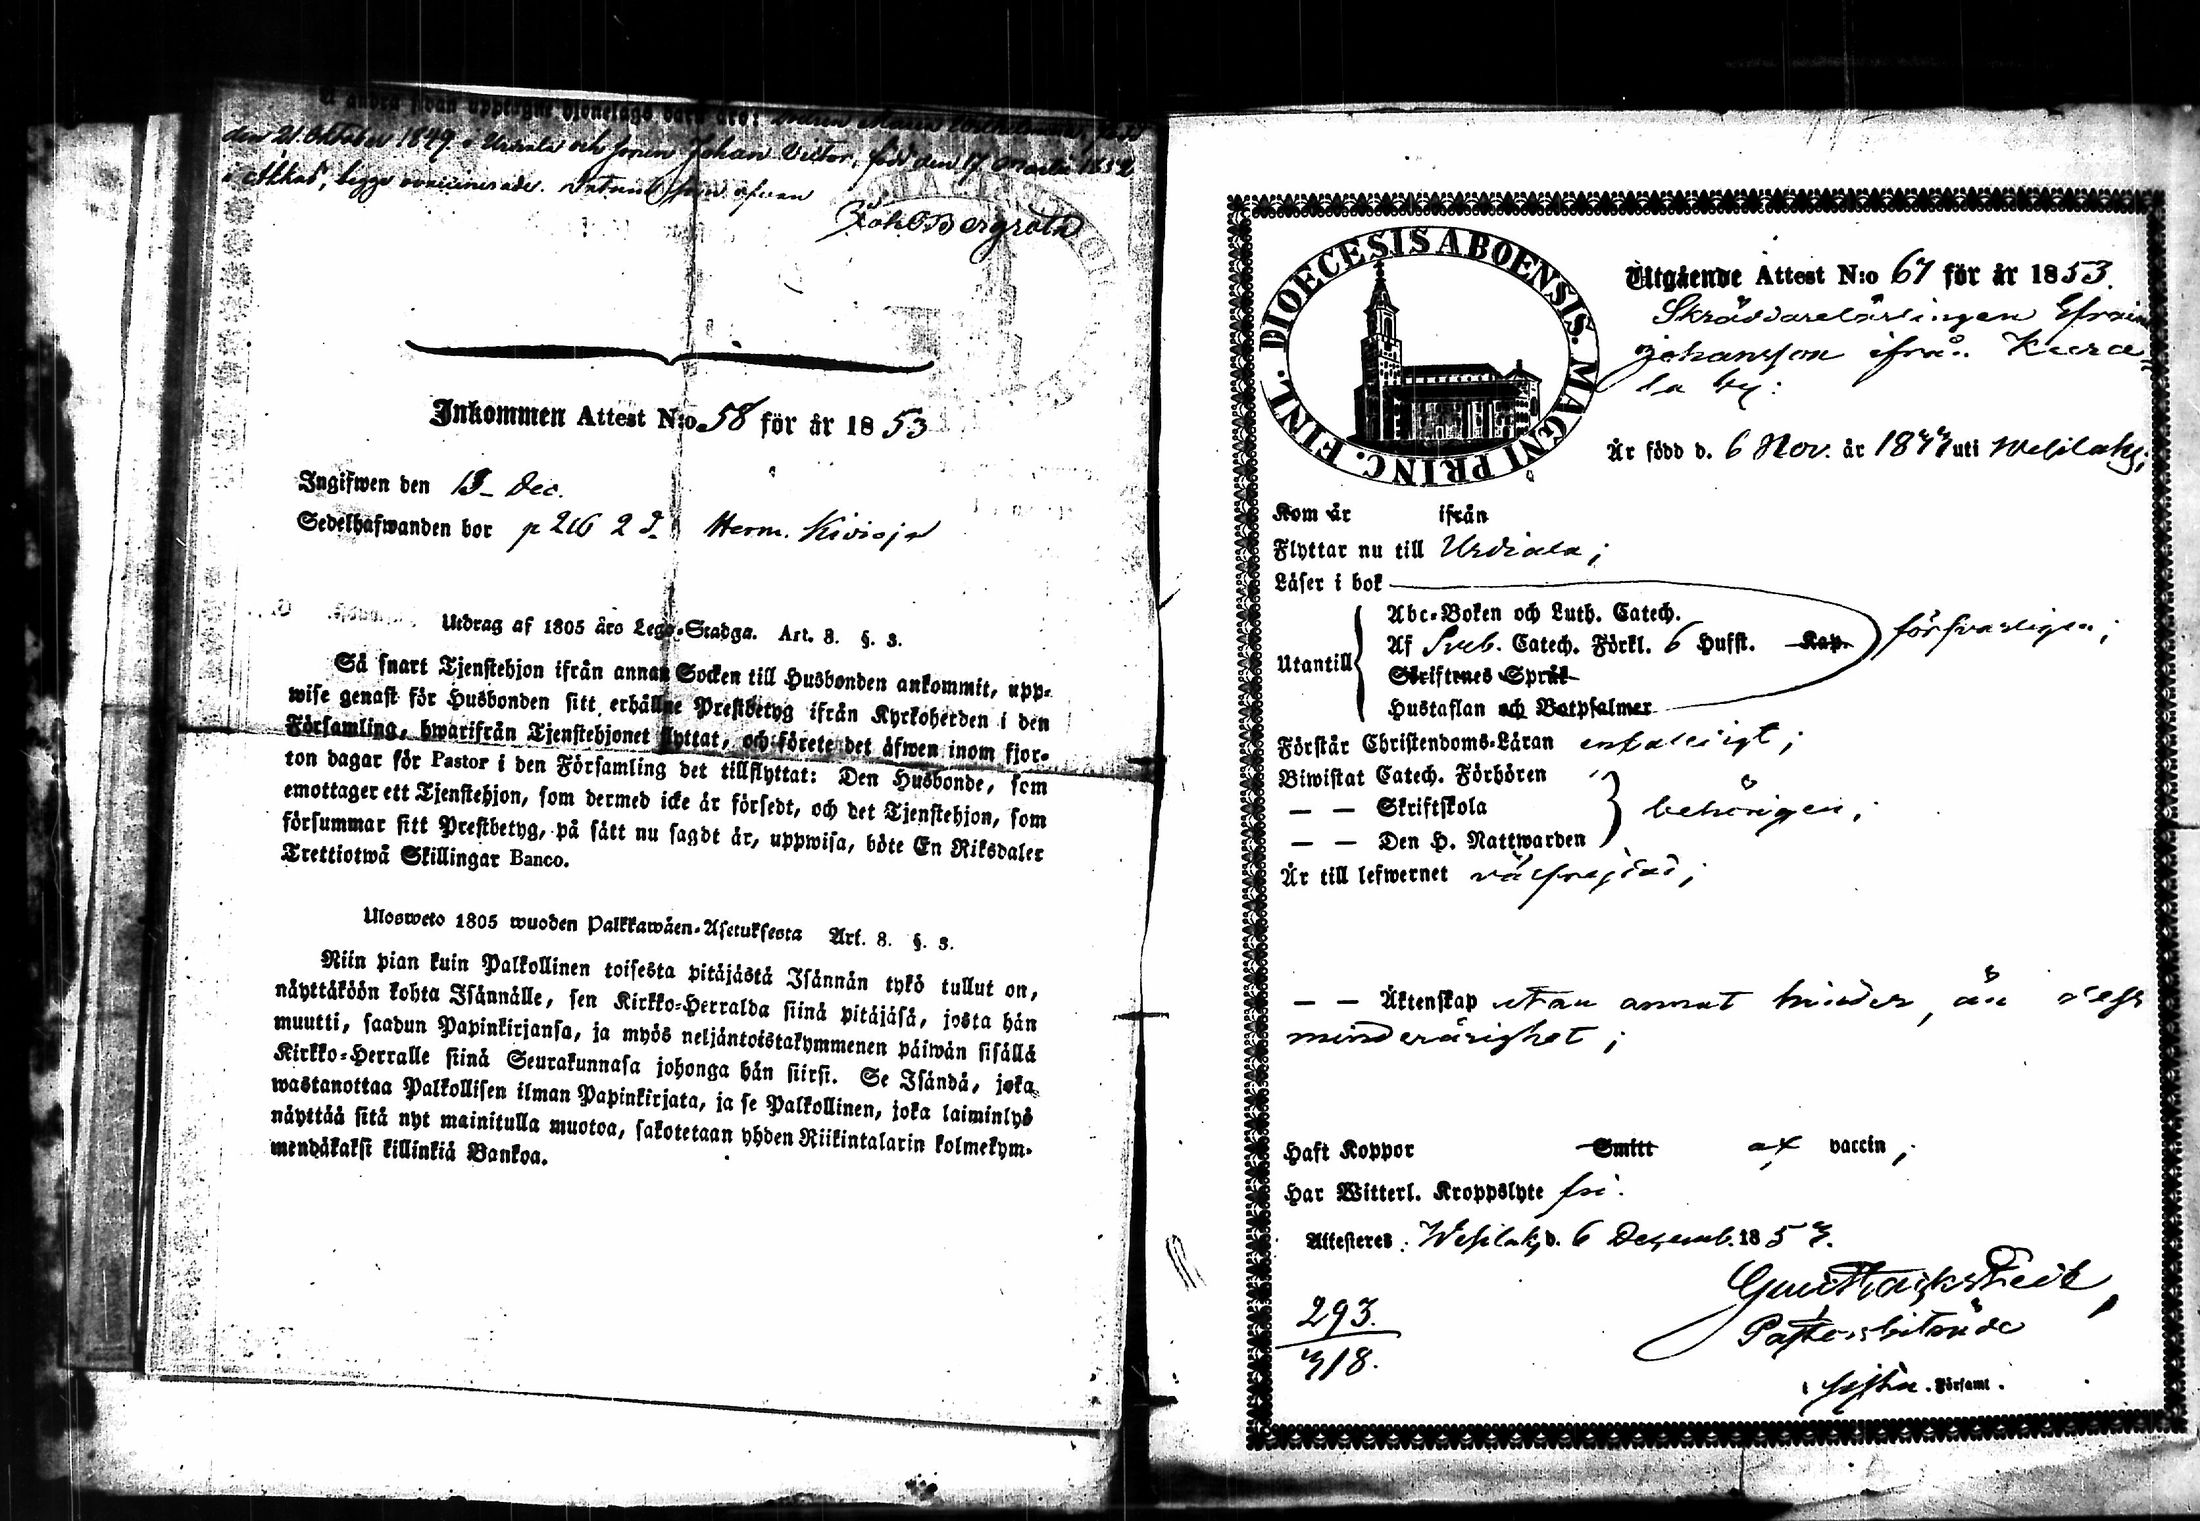 å andra sidan upptagne hjonelags barn äro:
den 21 Oktober 1849 i Urdiala och sonen Johan Victor, född den 17 Martii 1852
i Akkas, begge vaccinerade. Datum som ofvan
Joh. Bergroth
Inkommen Attest N:o 58 för år 1853
Ingifwen den 13 Dec.
Sedelhafwanden bor p 216 2 d. Herm. Kivioja
Utdrag af 1805 års Lego-Stadga. Art. 8. §. 3.
Så snart Tjenstehjon ifrån annan Socken till Husbonden ankommit, upp-
wise genast för Husbonden sitt erhållne Prestbetyg ifrån Kyrkoherden i den
Församling, hwarifrån Tjenstehjonet flyttat, och förete det äfwen inom fjor-
ton dagar för Pastor i den Församling det tillflyttat: Den Husbonde, som
emottager ett Tjenstehjon, som dermed icke är försedt, och det Tjenstehjon, som
försummar sitt Prestbetyg, på sätt nu sagdt är, uppwisa, böte En Riksdaler
Trettiotwå Skillingar Banco.
Ulosweto 1805 wuoden Palkkawäen-Asetuksesta Art. 8. §. 3.
Niin pian kuin Palkollinen toisesta pitäjästä Isännän tykö tullut on,
näyttäköön kohta Isännälle, sen Kirkko-Herralda siinä pitäjäsä, josta hän
muutti, saadun Papinkirjansa, ja myös neljäntoistakymmenen päiwän sisällä
Kirkko-Herralle siinä Seurakunnasa johonga hän siirsi. Se Isändä, joka
wastanottaa Palkollisen ilman Papinkirjata, ja se Palkollinen, joka laiminlyö
näyttää sitä nyt mainitulla muotoa, sakotetaan yhden Riikintalarin kolmekym-
mendäkaksi killinkiä Bankoa.
DIOECESIS ABOENSIS. MAGNI PRINC. FINL.
Utgående Attest N:o 67 för år 1853.
Skräddarelärlingen Efraim
Johansson ifrån Kura-
la by:
Är född d. 6 Nov. år 1833 uti Wesilaks;
Kom år ifrån
Flyttar nu till Urdiala;
Läser i bok
Abc-Boken och Luth. Catech.
Utantill Af Sveb. Catech. Förkl. 6 Hufst. Kap. försvarligen;
Skriftenes Språk
Hustaflan och Botpsalmer
Förstår Christendoms-Läran enfalligt;
Biwistat Catech. Förhören
— — Skriftskola behörigen;
— — Den H. Nattwarden
Är till lefwernet välfrejdad;
— — Äktenskap utan annat hinder, än
minderårighet;
Haft Koppor Smitt af vaccin;
Har Witterl. Kroppslyte fri.
Attesteres: Wesilaks d. 6 Decemb. 1853.
Pastorsbiträde
293.
318.
Församl.